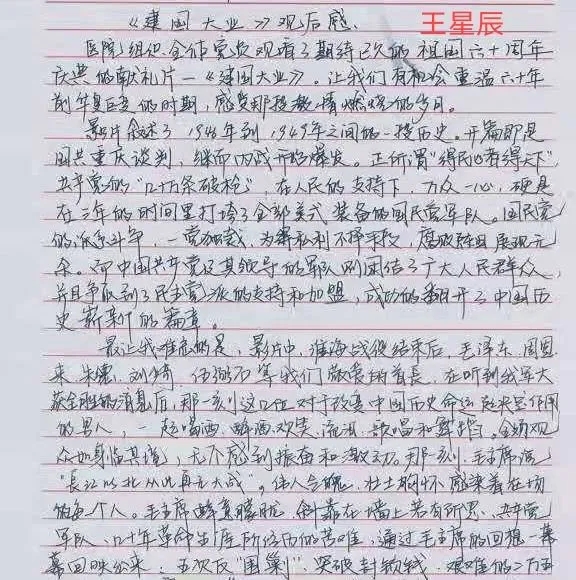 《建国大业》观后感、
王星辰
医院组织全体党员观看了期待已久的祖国六十周年
庆典的献礼片—《建国大业》。让我们有机会重温六十年
前 的时期，感受那段激情燃烧的岁月。
影片叙述了1945年到1949年之间的一段历史。开篇即是
国共重庆谈判，继而内战开始爆发。正所谓“得民心者得天下”，
共产党的“几十万条破枪”，在人民的支持下，万众一心，硬是
在三年的时间里打垮了全部美式装备的国民党军队。国民党
的派系斗争，一党独裁，为得私利不择手段，腐败 展现无
余。而中国共产党及其领导的军队则团结了广大人民群众，
并且争取到了民主党派的支持和加盟，成功的翻开了中国历
史崭新的篇章。
最让我难忘的是，影片中，淮海战役结束后，毛泽东、周恩
来、朱德、刘少奇、任弼时等我们敬爱的首长，在听到我军大
获全胜的消息后，那一刻这几位对于改变中国历史命运起决定作用
的男人，一起喝酒、醉酒、欢笑、流泪、歌唱和舞蹈。令动观
众如身临其境，无不感到振奋和激动。那一刻，毛主席说
“长江以北从此再无大战”。伟人气魄，壮士胸怀感染着在场
的每个人。毛主席醉意朦胧，斜靠在墙上若有所思，共产党
军队，几十年革命生涯所经历的苦难，通过毛主席的回想一幕
幕回映出来：五次反“围剿”、突破封锁线、艰难的二万五